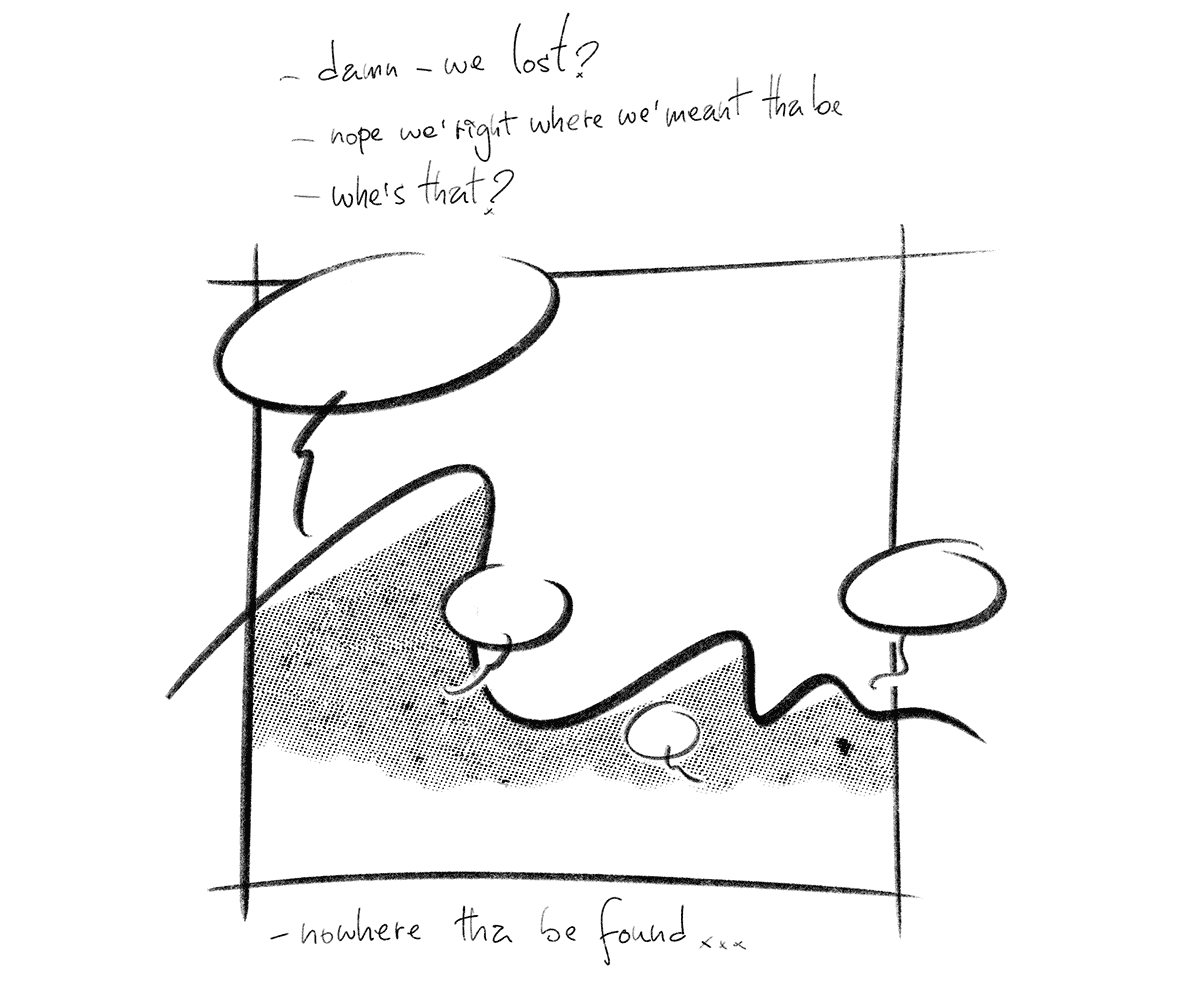 - damn - we lost?
- nope we'right where we'meant tha be
- whe's that?
- nowhere tha be found...